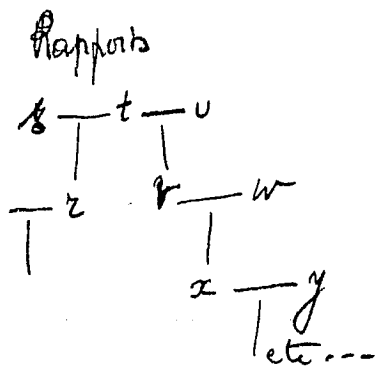 Rapports
s t u
r v w
x y
etc...